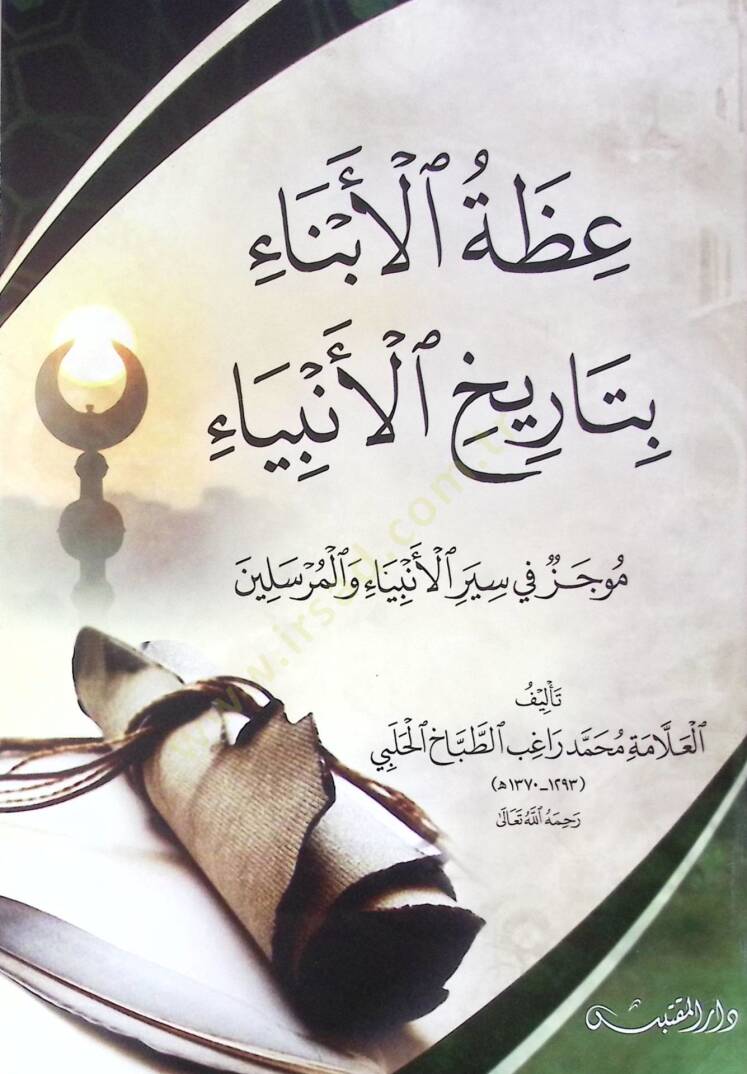 عِظَةُ ٱلْأَبْنَاءِ
بِتَارِيخِ ٱلْأَنْبِيَاءِ
مُوجَزٌ فِي سِيَرِ ٱلْأَنْبِيَاءِ وَٱلْمُرْسَلِينَ
تَأْلِيْفُ
ٱلْعَلَّامَةِ مُحَمَّد رَاغِب ٱلطَّبَّاخ ٱلْحَلَبِي
(١٢٩٣-١٣٧٠ه)
رَحِمَهُ ٱللَّهُ تَعَالَى
دار المقتبس
www.irsad.com.tr